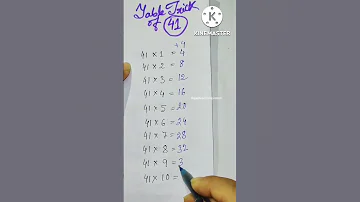 Table Trick
of 41
+4
41 × 1 = 4
41 × 2 = 8
41 × 3 = 12
41 × 4 = 16
41 × 5 = 20
41 × 6 = 24
41 × 7 = 28
41 × 8 = 32
41 × 9 = 3
41 × 10 =
KINEMASTER